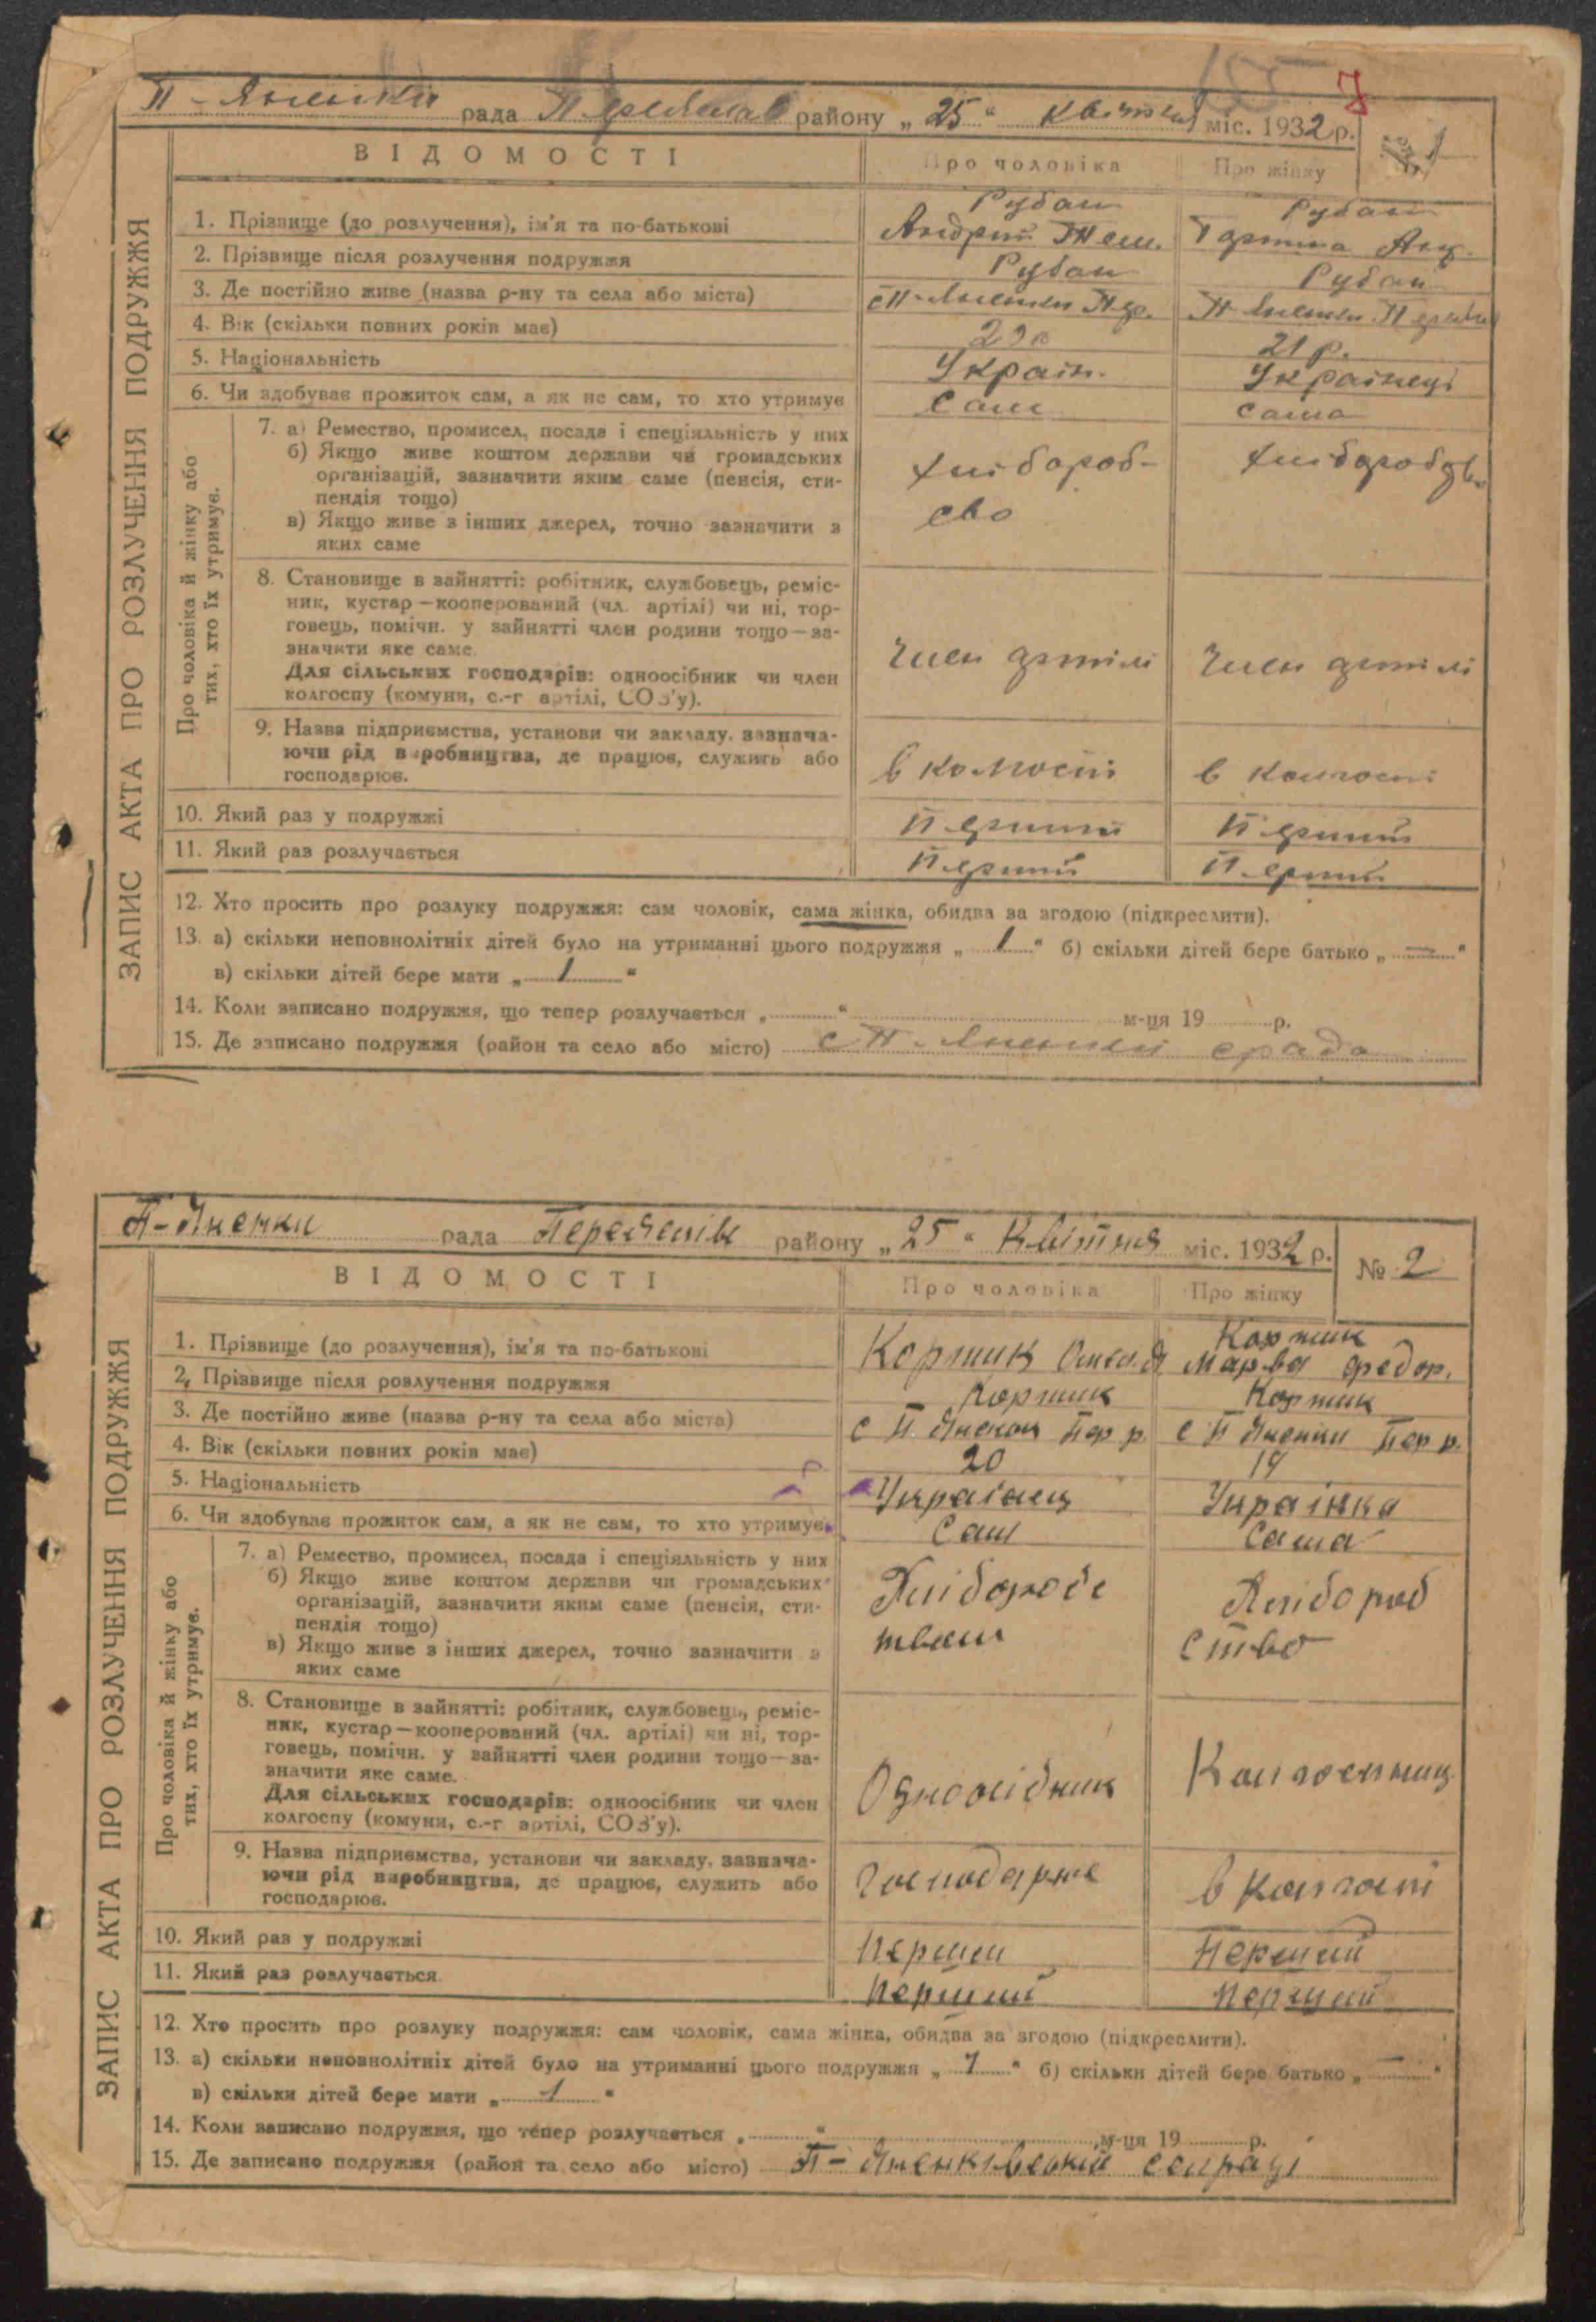 7
рада району „ 25 “ квітня міс. 1932 р.
№ 1
ВІДОМОСТІ
Про чоловіка
Про жінку
ЗАПИС АКТА ПРО РОЗЛУЧЕННЯ ПОДРУЖЖЯ
1. Прізвище (до розлучення), ім'я та по-батькові
Рубан
Андрій
Рубан
2. Прізвище після розлучення подружжя
Рубан
Рубан
3. Де постійно живе (назва р-ну та села або міста)
4. Вік (скільки повних років має)
21 р.
5. Національність
Україн.
6. Чи здобуває прожиток сам, а як не сам, то хто утримує
Сам
сама
Про чоловіка й жінку або
тих, хто їх утримує.
7. а) Ремество, промисел, посада і спеціяльність у них
б) Якщо живе коштом держави чи громадських
організацій, зазначити яким саме (пенсія, сти-
пендія тощо)
в) Якщо живе з інших джерел, точно зазначити з
яких саме
хлібороб-
сво
8. Становище в зайнятті: робітник, службовець, реміс-
ник, кустар—кооперований (чл. артілі) чи ні, тор-
говець, помічн. у зайнятті член родини тощо—за-
значити яке саме.
Для сільських господарів: одноосібник чи член
колгоспу (комуни, с.-г артілі, СОЗ'у).
Член артілі
Член артілі
9. Назва підприємства, установи чи закладу, зазнача-
ючи рід виробництва, де працює, служить або
господарює.
в колгоспі
в колгоспі
10. Який раз у подружжі
Перший
Перший
11. Який раз розлучається
Перший
Перший
12. Хто просить про розлуку подружжя: сам чоловік, сама жінка, обидва за згодою (підкреслити).
13. а) скільки неповнолітніх дітей було на утриманні цього подружжя „ 1 “ б) скільки дітей бере батько „ — “
в) скільки дітей бере мати „ 1 “
14. Коли записано подружжя, що тепер розлучається „ “ м-ця 19 р.
15. Де записано подружжя (район та село або місто)
П-Яненки рада району „ 25 “ Квітня міс. 1932 р.
№ 2
ВІДОМОСТІ
Про чоловіка
Про жінку
ЗАПИС АКТА ПРО РОЗЛУЧЕННЯ ПОДРУЖЖЯ
1. Прізвище (до розлучення), ім'я та по-батькові
Коржик
Коржик
Марва Федор.
2. Прізвище після розлучення подружжя
Коржик
Коржик
3. Де постійно живе (назва р-ну та села або міста)
с П Яненки Пер р.
4. Вік (скільки повних років має)
20
5. Національність
Українец
Українка
6. Чи здобуває прожиток сам, а як не сам, то хто утримує
Сам
Сама
Про чоловіка й жінку або
тих, хто їх утримує.
7. а) Ремество, промисел, посада і спеціяльність у них
б) Якщо живе коштом держави чи громадських
організацій, зазначити яким саме (пенсія, сти-
пендія тощо)
в) Якщо живе з інших джерел, точно зазначити з
яких саме
Хлібороб
ство
8. Становище в зайнятті: робітник, службовець, реміс-
ник, кустар—кооперований (чл. артілі) чи ні, тор-
говець, помічн. у зайнятті член родини тощо—за-
значити яке саме.
Для сільських господарів: одноосібник чи член
колгоспу (комуни, с.-г артілі, СОЗ'у).
Одноосібник
Колгоспниц
9. Назва підприємства, установи чи закладу, зазнача-
ючи рід виробництва, де працює, служить або
господарює.
Господарює
в колгоспі
10. Який раз у подружжі
Перший
Перший
11. Який раз розлучається
Перший
Перший
12. Хто просить про розлуку подружжя: сам чоловік, сама жінка, обидва за згодою (підкреслити).
13. а) скільки неповнолітніх дітей було на утриманні цього подружжя „ 1 “ б) скільки дітей бере батько „ — “
в) скільки дітей бере мати „ 1 “
14. Коли записано подружжя, що тепер розлучається „ “ м-ця 19 р.
15. Де записано подружжя (район та село або місто) П-Яненківській сельраді